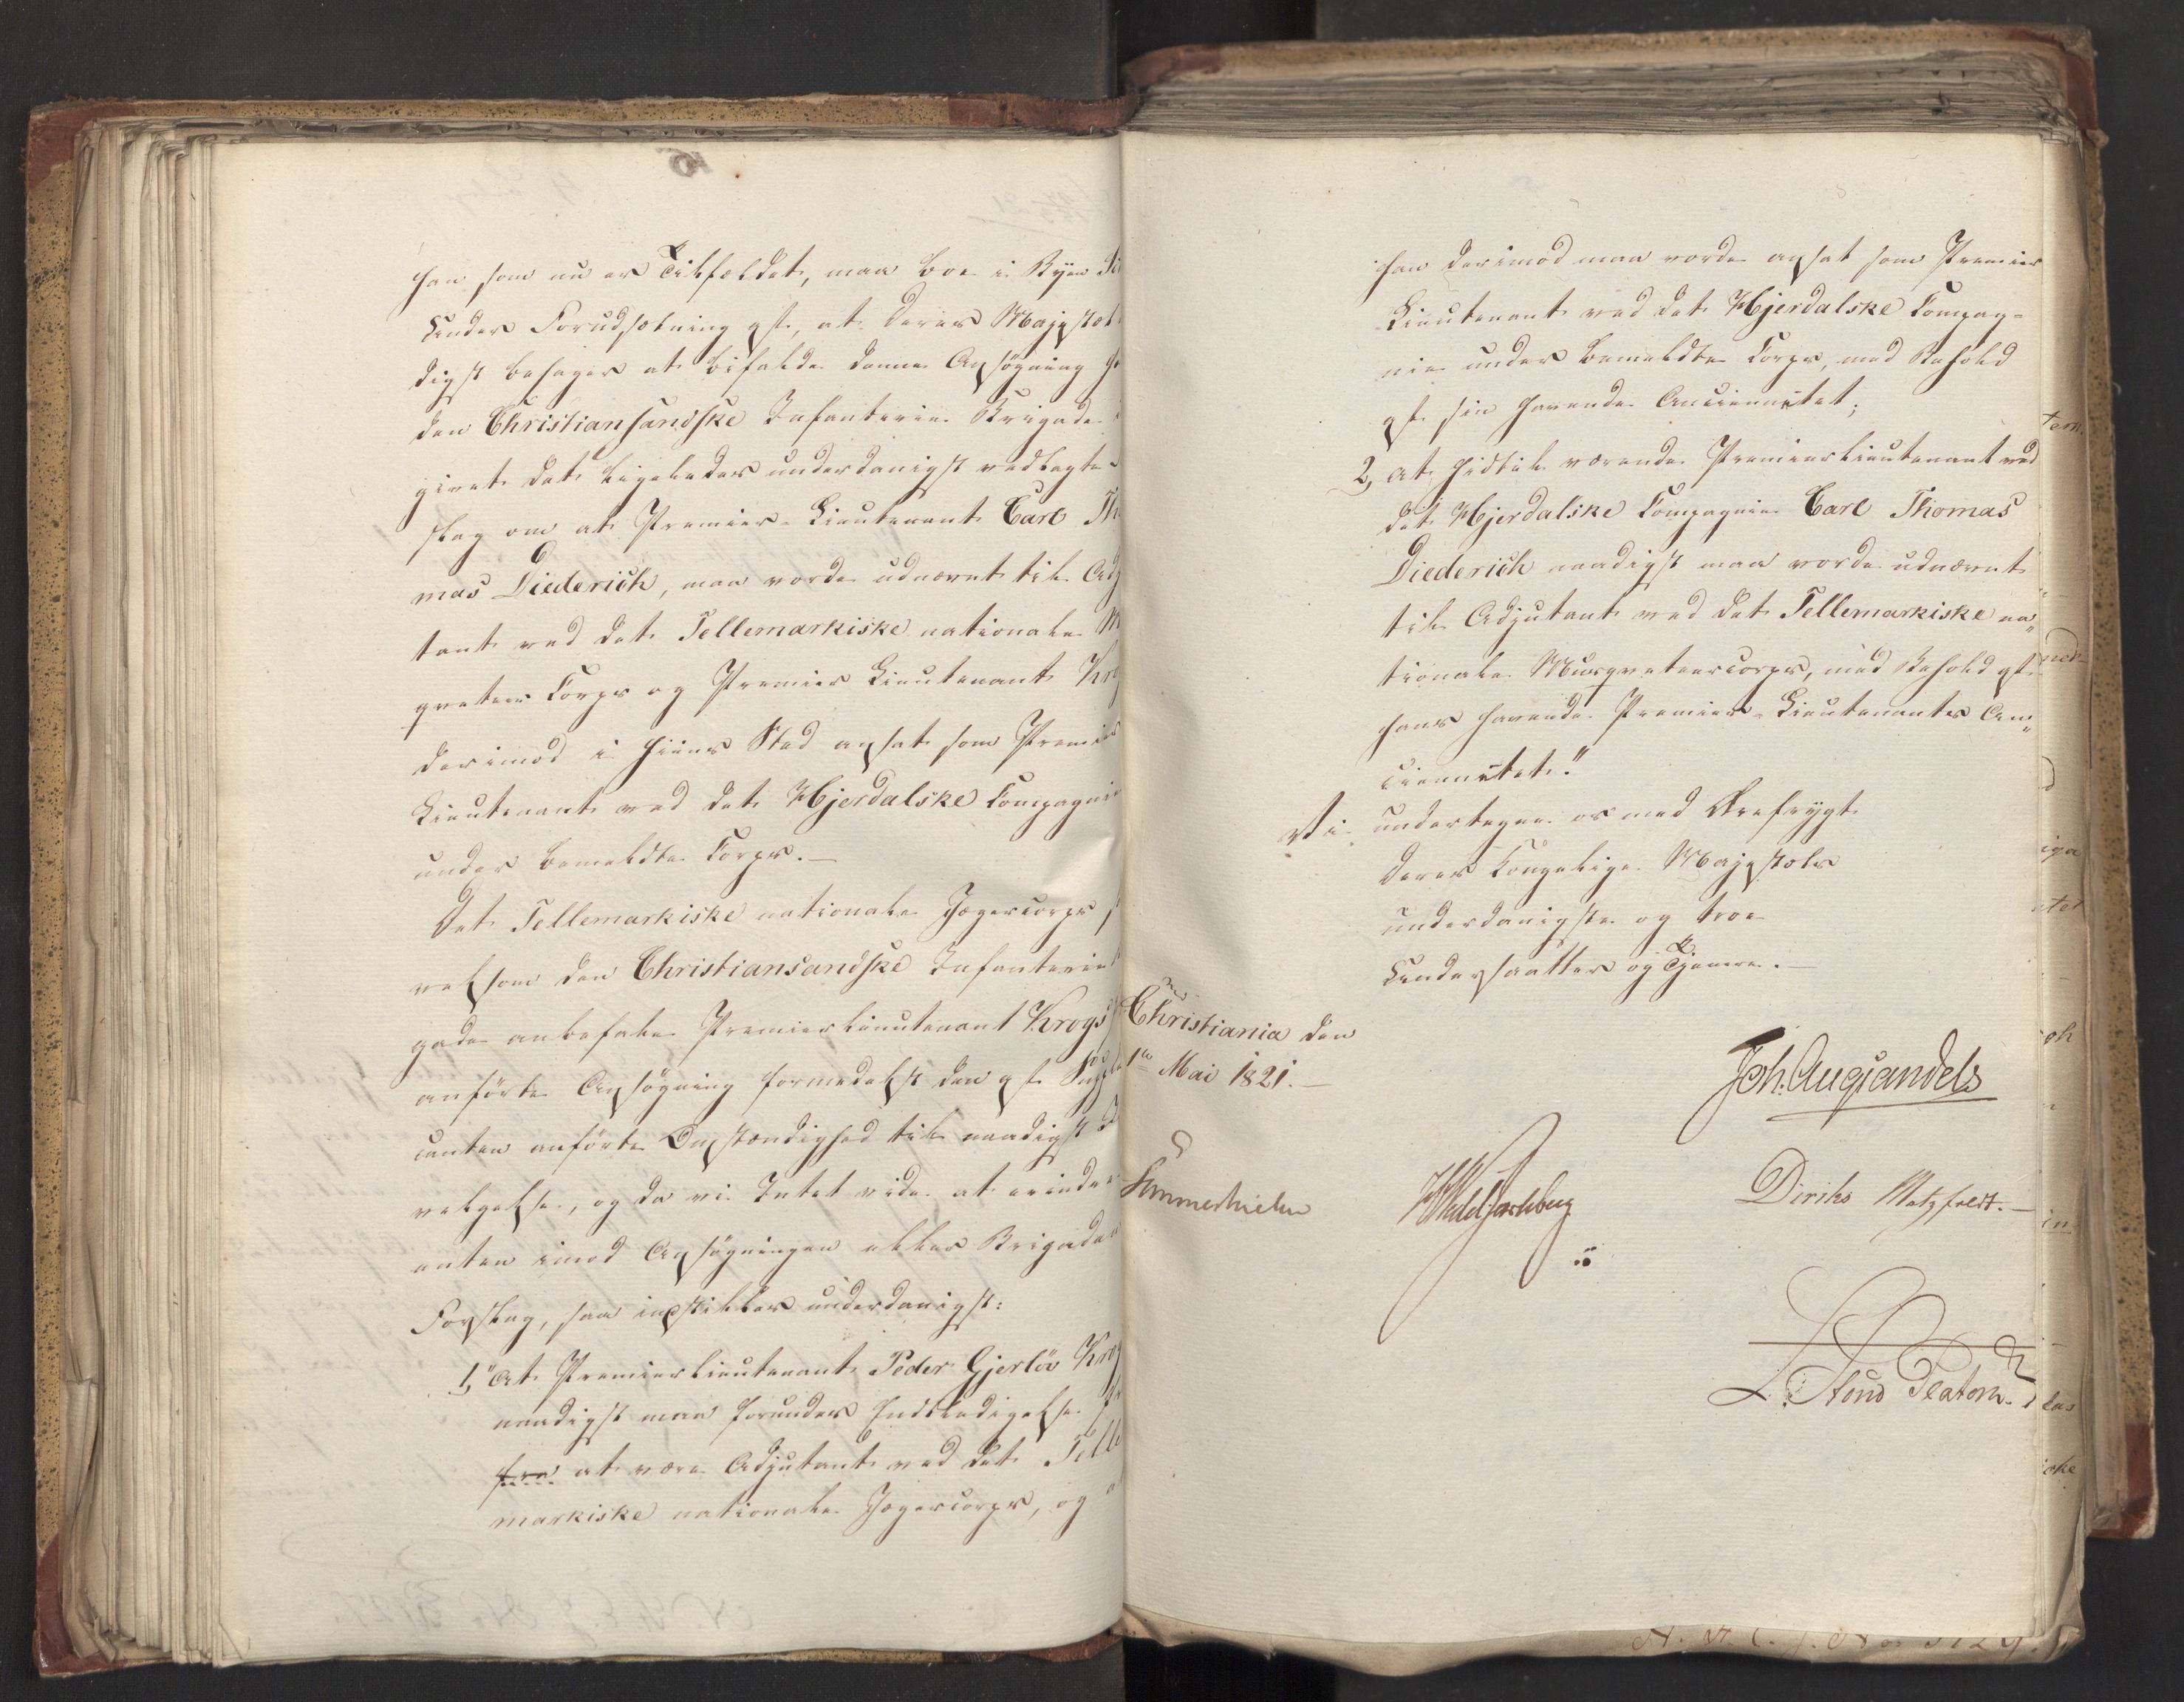 han som nu er Tilfældet, maa boe i Byen
Under Forudsætning af, at Deres Majestæt
digst behager at bifalde denne Ansøgning
den Christiansandske Infanterie Brigade
givet det ligeledes underdanigst vedlagte
slag om at Premier-Lieutenant Carl Th
mas Diederich, maa vorde udnævnt til Adj
tant ved det Tellemarkiske nationale M
qveteer Corps og Premier Lieutenant Krog
derimod i hiins Sted ansat som Premier
Lieutenant ved det Hjerdalske Compagnie
under bemeldte Corps.—
Det Tellemarkiske nationale Jægercorps
velsom den Christiansandske Infanterie
gade anbefale Premierlieutenant Krogs
anförte Ansögning formedelst den af
canten anförte Omstændighed til naadigst
velgelse, og da vi Intet vide at erindre
enten imod Ansögningen eller Brigadens
Forslag, saa indstilles underdanigst:
1, "At Premierlieutenant Peder Gjerlöv Krog
naadigst maa forundes Entledigelse
fra at være Adjutant ved det Telle
markiske nationale Jægercorps, og
han derimod maa vorde ansat som Premier
Lieutenant ved det Hjerdalske Compag-
nie under bemeldte Corps, med Behold
af sin havende Anciennitet;
2, at hidtil værende Premierlieutenant ved
det Hjerdalske Compagnie Carl Thomas
Diederich naadigst maa vorde udnævnt
til Adjutant ved det Tellemarkiske na„
tionale Musqveteercorps, med Behold af
hans havende Premier-Lieutenants An„
ciennitet."
Vi undertegne os med Ærefrygt
Deres Kongelige Majestæts
underdanigste og troe
Undersaatter og Tjenere.—
Christiania den
1te Mai 1821.—
Joh. Aug. Sandels
Sommerhielm
Diriks Motzfeldt.—
L. Stoud Platou